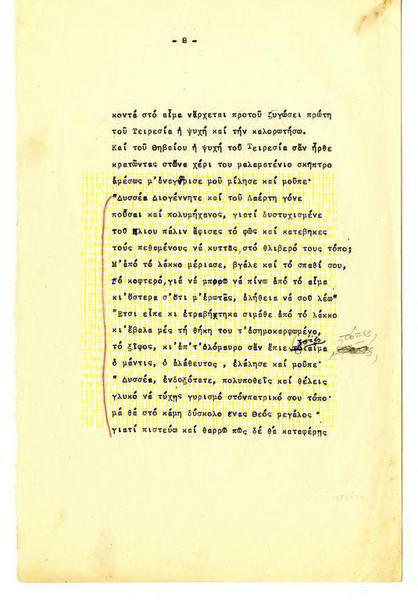 - 8 -
κοντά στό αἷμα νἄρχεται προτοῦ ζυγώσει πρώτη
τοῦ Τειρεσία ἡ ψυχή καί τήν καλορωτήσω.
Καί τοῦ Θηβαίου ἡ ψυχή τοῦ Τειρεσία σἄν ἦρθε
κρατῶντας στὄνα χέρι του μαλαματένιο σκῆπτρο
ἀμέσως μ'ἀνεγνώρισε μοῦ μίλησε καί μοὖπε·
"Δυσσέα Διογέννητε καί τοῦ Λαέρτη γόνε
ποὖσαι καί πολυμήχανος, γιατί δυστυχισμένε
τοῦ ἥλιου πάλιν ἄφισες τό φῶς καί κατέβηκες
τούς πεθαμένους νά κυττᾶς, στό θλιβερό τους τόπο;
Μ'ἀπό τό λάκκο μέριασε, βγάλε καί τό σπαθί σου,
τό κοφτερό, γιά νά μπορῶ νά πίνω ἀπό τό αἷμα
κι'ὕστερα σ'ὅτι μ'ἐρωτᾶς, ἀλήθεια νά σοῦ λέω"
"Ἔτσι εἶπε κι ἐτραβήχτηκα σιμάθε ἀπό τό λάκκο
κι'ἔβαλα μές τή θήκη του τ'ἀσημοκαρφωμένο,
τό ξίφος, κι ἐπ'τ'ὁλόμαυρο σἄν ἔπιε αἷμα
ὁ μάντις, ὁ ἀλάθευτος, ἐλάλησε καί μοὖπε·
" Δυσσέα, ἐνδοξότατε, πολυποθεῖς καί θέλεις
γλυκό νά τύχης γυρισμό στόνπατρικό σου τόπο·
μά θά στό κάμη δύσκολο ἕνας Θεός μεγάλος·
γιατί πιστεύω καί θαρρῶ πῶς δέ θά καταφέρης